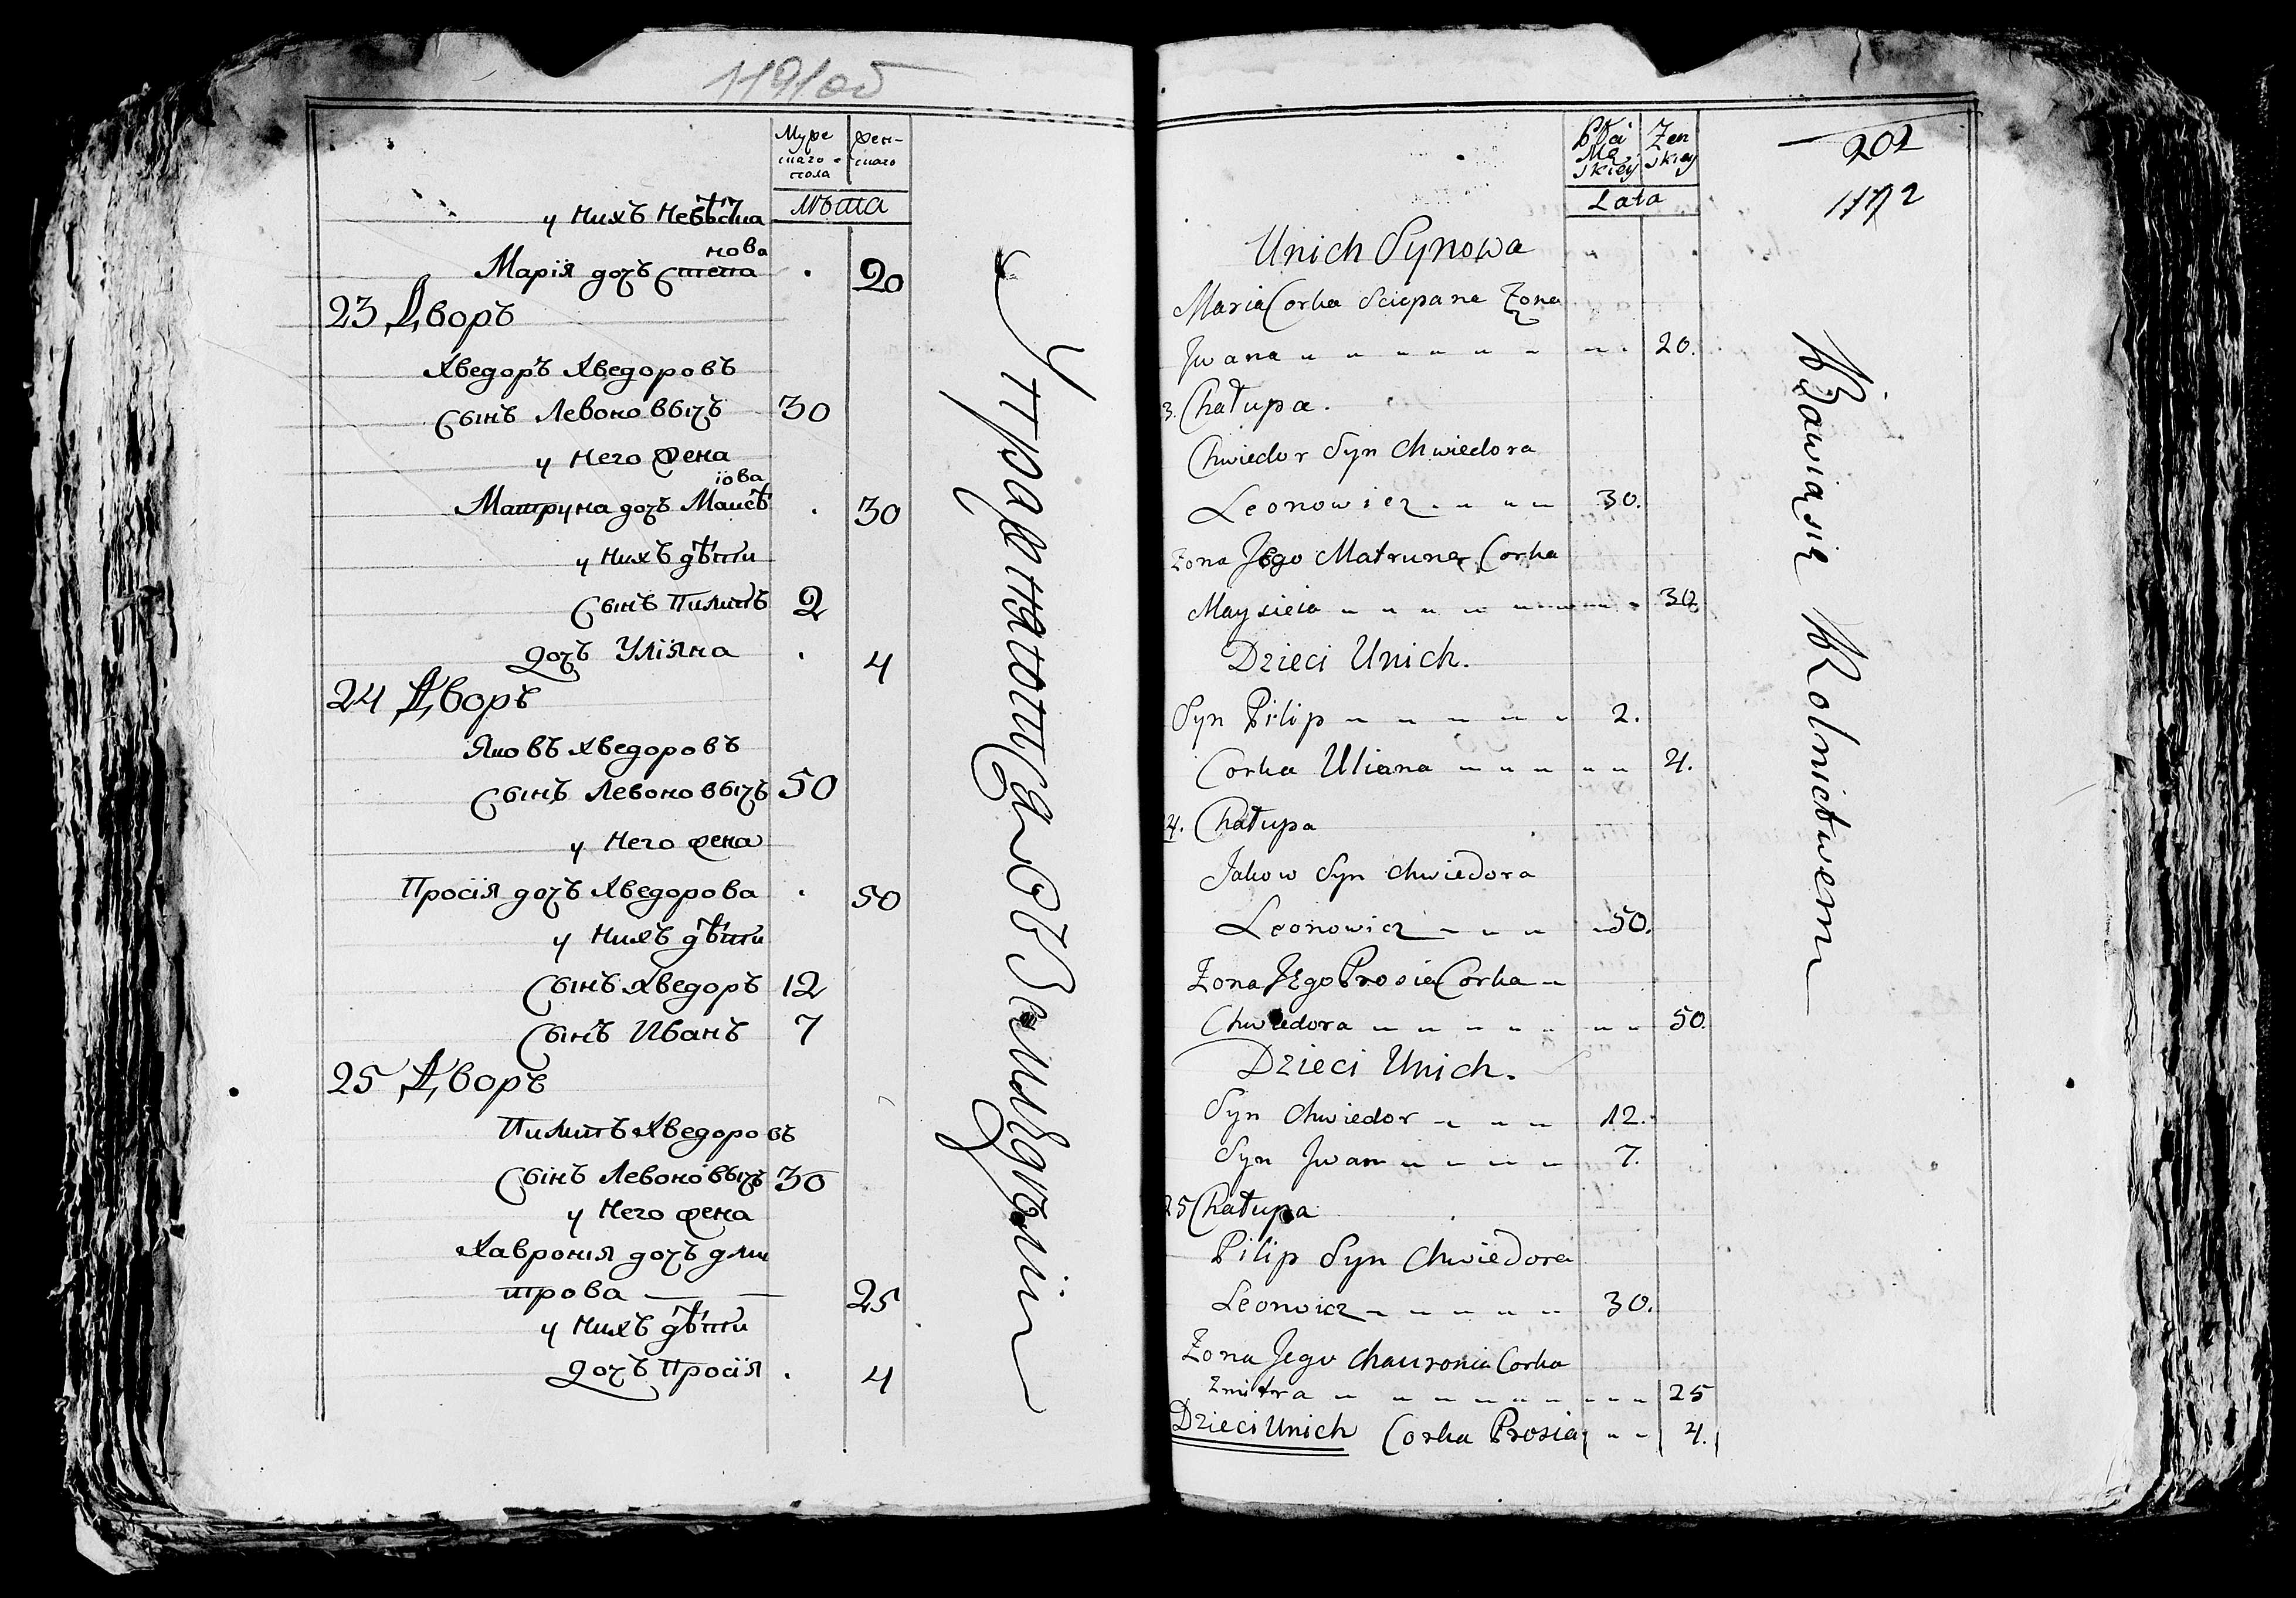 119/об
Муже
скаго
пола
жен-
скаго
Лѣта
у нихъ невѣстка
нова
Марія дочь Степа . 20
23 Дворъ
Хведоръ Хведоровъ
Сынъ Левоновычъ 30
у него жена
іова
Матруна дочь Маисѣ . 30
у нихъ дѣти
Сынъ Пилипъ 2
дочъ Уліяна . 4
24 Дворъ
Яковъ Хведоровъ
Сынъ Левоновычъ 50
у него жена
Просія дочъ Хведорова . 50
у нихъ дѣти
Сынъ Хведоръ 12
Сынъ Иванъ 7
25 Дворъ
Пилипъ Хведоровъ
Сынъ Левоновычъ 30
у него жена
Хавронія дочъ дми
трова — 25
у нихъ дѣти
дочъ Просія . 4
Упражняются въ Земледѣліи
Płci
Mę
skiey
Zen
skiey
Lata
202
1172
Unich Synowa
Maria Corka Sciepana Zona
Jwana 20.
3. Chałupa.
Chwiedor Syn Chwiedora
Leonowicz 30.
Zona Jego Matruna Corka
Maysieia 30
Dzieci Unich.
Syn Pilip 2.
Corka Uliana 4.
4. Chałupa
Jakow Syn Chwiedora
Leonowicz 50.
Zona Jego Prosia Corka
Chwiedora 50.
Dzieci Unich.
Syn Chwiedor 12.
Syn Jwan 7.
25 Chałupa
Pilip Syn Chwiedora
Leonwicz 30.
Zona Jego Chauronia Corka
Zmitra 25
Dzieci Unich Corka Prosia 4.
Bawią się Rolnictwem